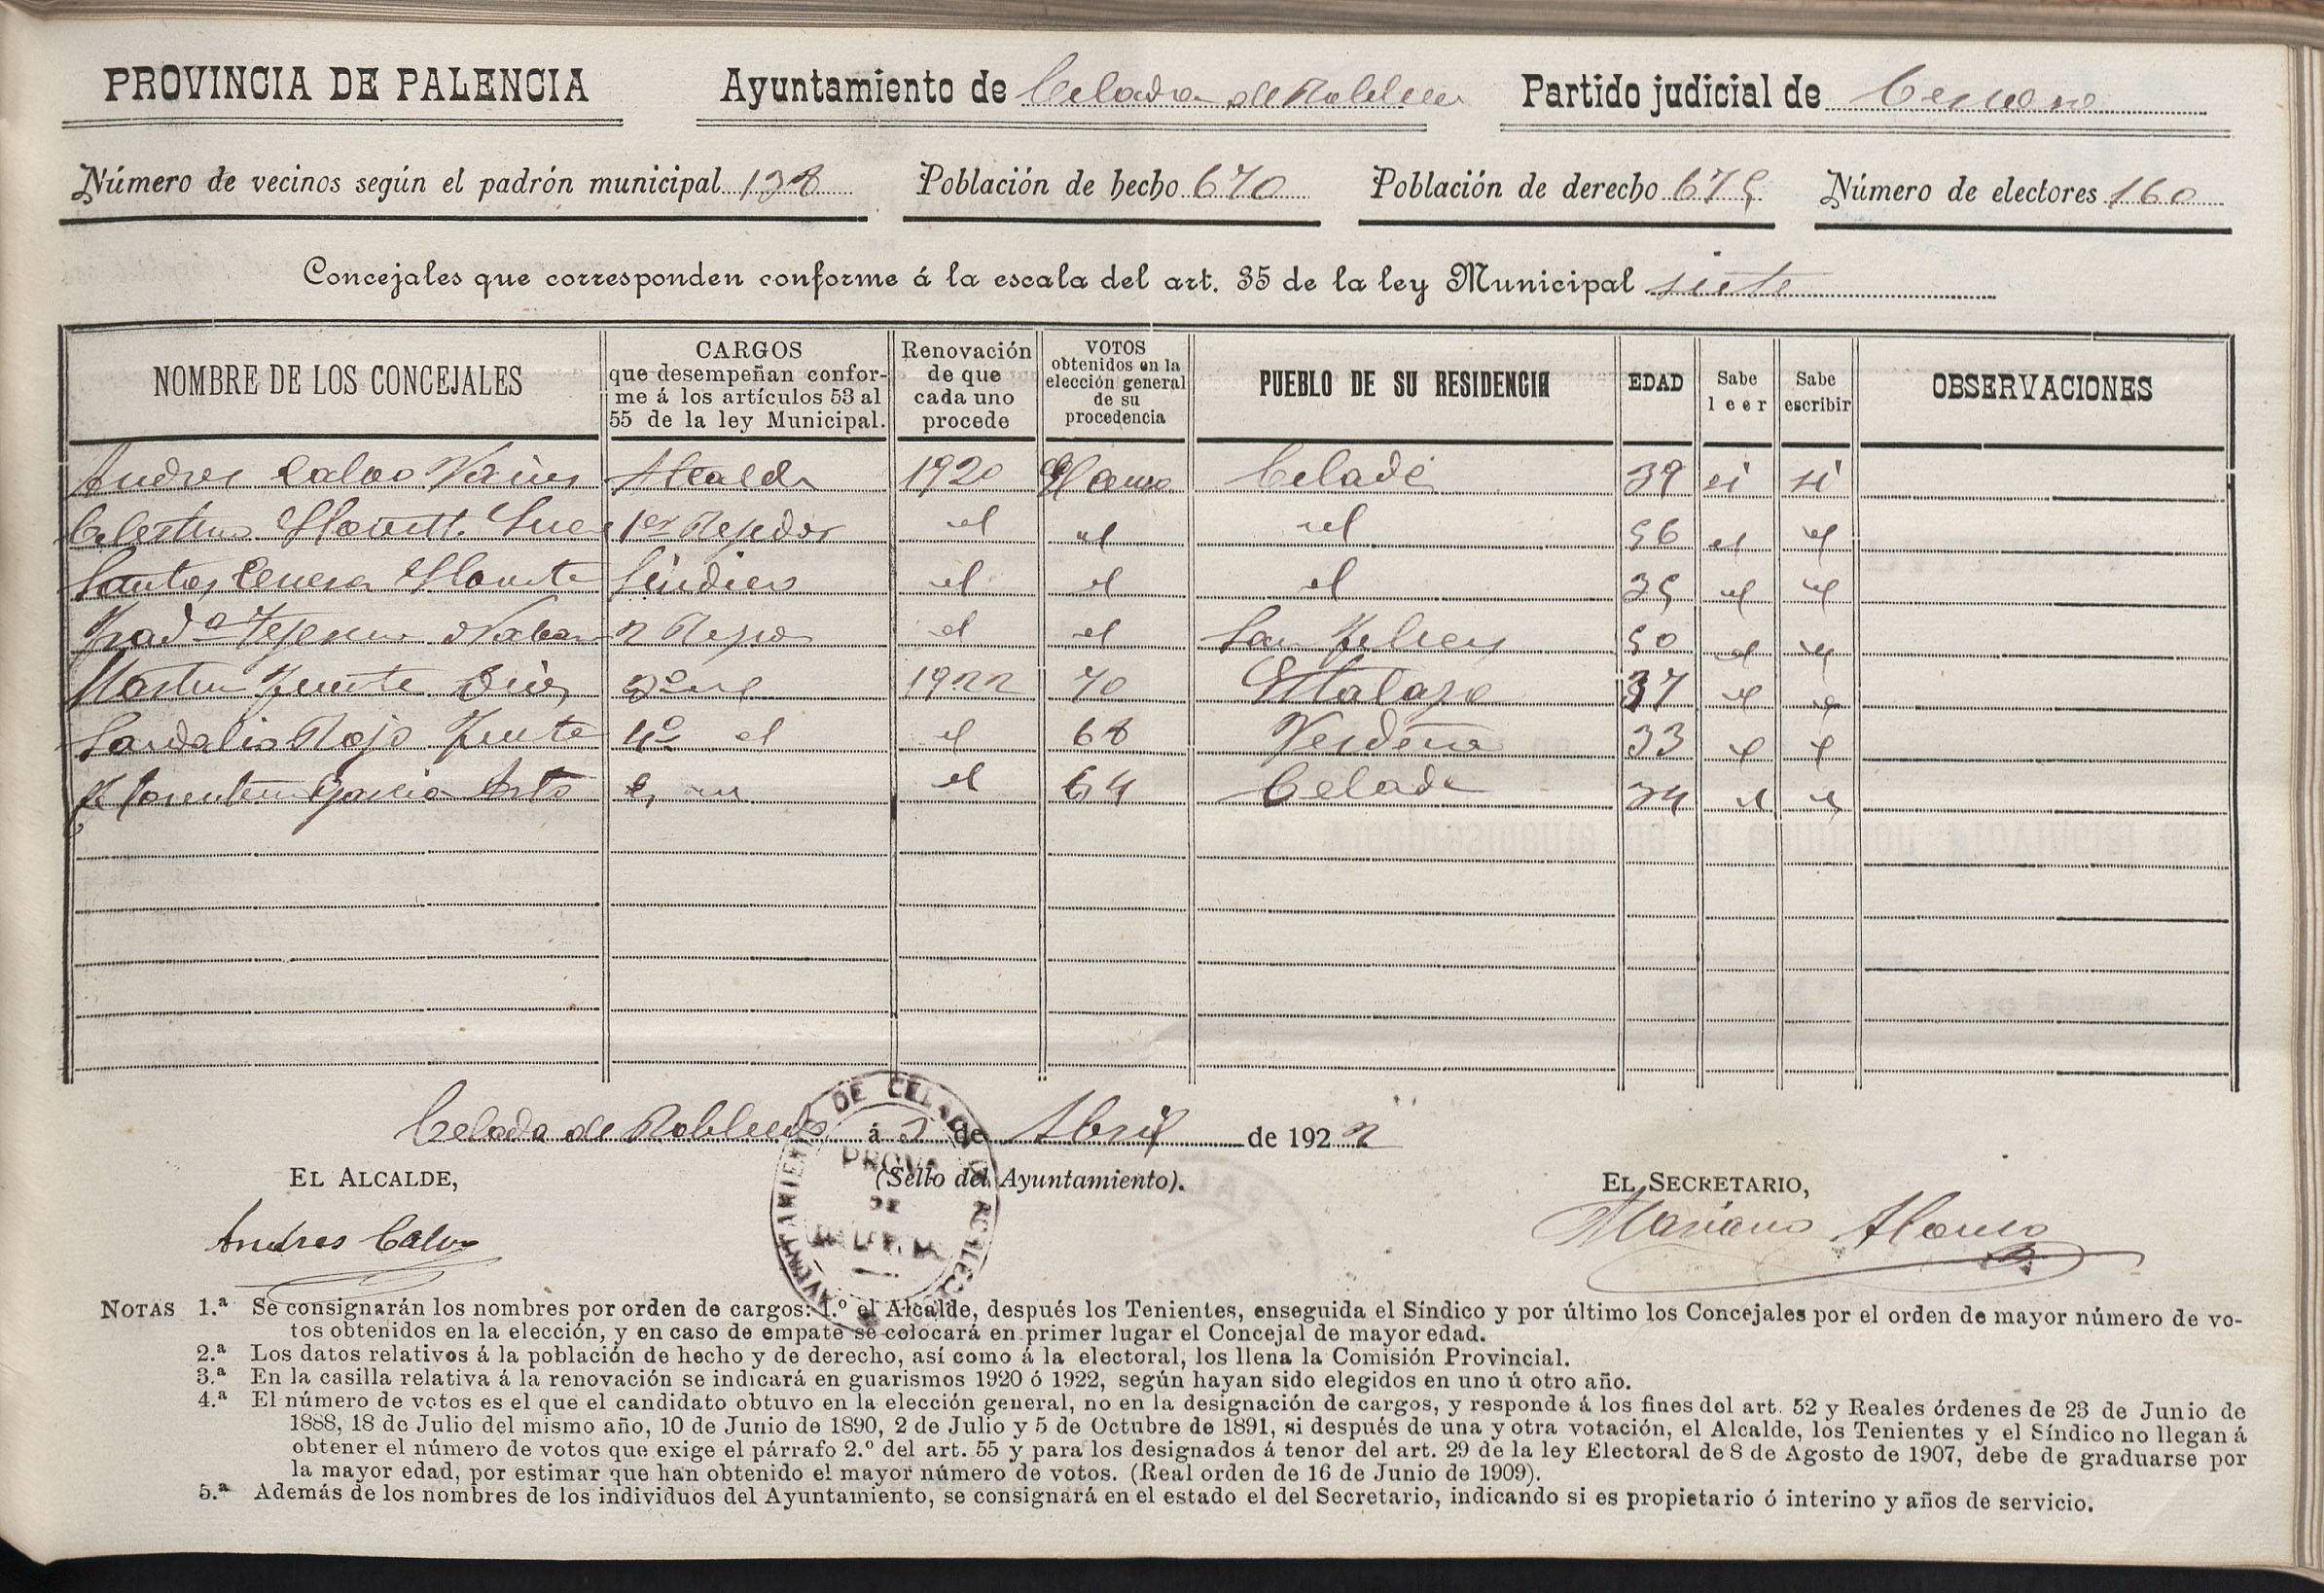 PROVINCIA DE PALENCIA Ayuntamiento de Celada de Roblecedo Partido judicial de Cervera
Número de vecinos según el padrón municipal 138 Población de hecho 670 Población de derecho 675 Número de electores 160
Concejales que corresponden conforme á la escala del art. 35 de la ley Municipal siete
NOMBRE DE LOS CONCEJALES
CARGOS
que desempeñan confor-
me á los artículos 53 al
55 de la ley Municipal.
Renovación
de que
cada uno
procede
VOTOS
obtenidos en la
elección general
de su
procedencia
PUEBLO DE SU RESIDENCIA
EDAD
Sabe
leer
Sabe
escribir
OBSERVACIONES
Andres Calvo Alcalde 1920 Celada 39 si si
Celestino 1er Rejidor id id id 56 id id
Santos Sindico id id id 35 id id
2 id id San Felices 50 id id
Martin Fuente Diez 3º id 1922 70 Estalaya 37 id id
Sandalio Rojo Fuente 4º id id 68 Verdeña 33 id id
Garcia id 64 Celada 34 id id
Celada de á 5 de Abril de 1922
EL ALCALDE,
(Sello del Ayuntamiento).
EL SECRETARIO,
Andres Calvo
Mariano Alonso
NOTAS 1.ª Se consignarán los nombres por orden de cargos: 1.º el Alcalde, después los Tenientes, enseguida el Síndico y por último los Concejales por el orden de mayor número de vo-
tos obtenidos en la elección, y en caso de empate se colocará en primer lugar el Concejal de mayor edad.
2.ª Los datos relativos á la población de hecho y de derecho, así como á la electoral, los llena la Comisión Provincial.
3.ª En la casilla relativa á la renovación se indicará en guarismos 1920 ó 1922, según hayan sido elegidos en uno ú otro año.
4.ª El número de votos es el que el candidato obtuvo en la elección general, no en la designación de cargos, y responde á los fines del art. 52 y Reales órdenes de 23 de Junio de
1888, 18 de Julio del mismo año, 10 de Junio de 1890, 2 de Julio y 5 de Octubre de 1891, si después de una y otra votación, el Alcalde, los Tenientes y el Síndico no llegan á
obtener el número de votos que exige el párrafo 2.º del art. 55 y para los designados á tenor del art. 29 de la ley Electoral de 8 de Agosto de 1907, debe de graduarse por
la mayor edad, por estimar que han obtenido el mayor número de votos. (Real orden de 16 de Junio de 1909).
5.ª Además de los nombres de los individuos del Ayuntamiento, se consignará en el estado el del Secretario, indicando si es propietario ó interino y años de servicio.